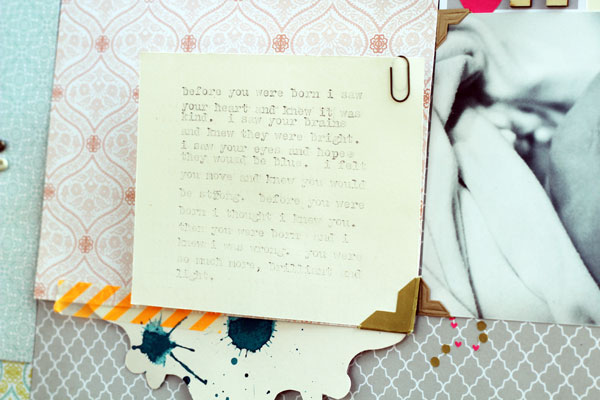 before you were born i saw
your heart and knew it was
kind.  i saw your brains
and knew they were bright.
i saw your eyes and hopes
they would be blue.  i felt
you move and knew you would
be strong.  before you were
born i thought i knew you.
then you were born and i
knew i was wrong.  you were
so much more, brilliant and
light.